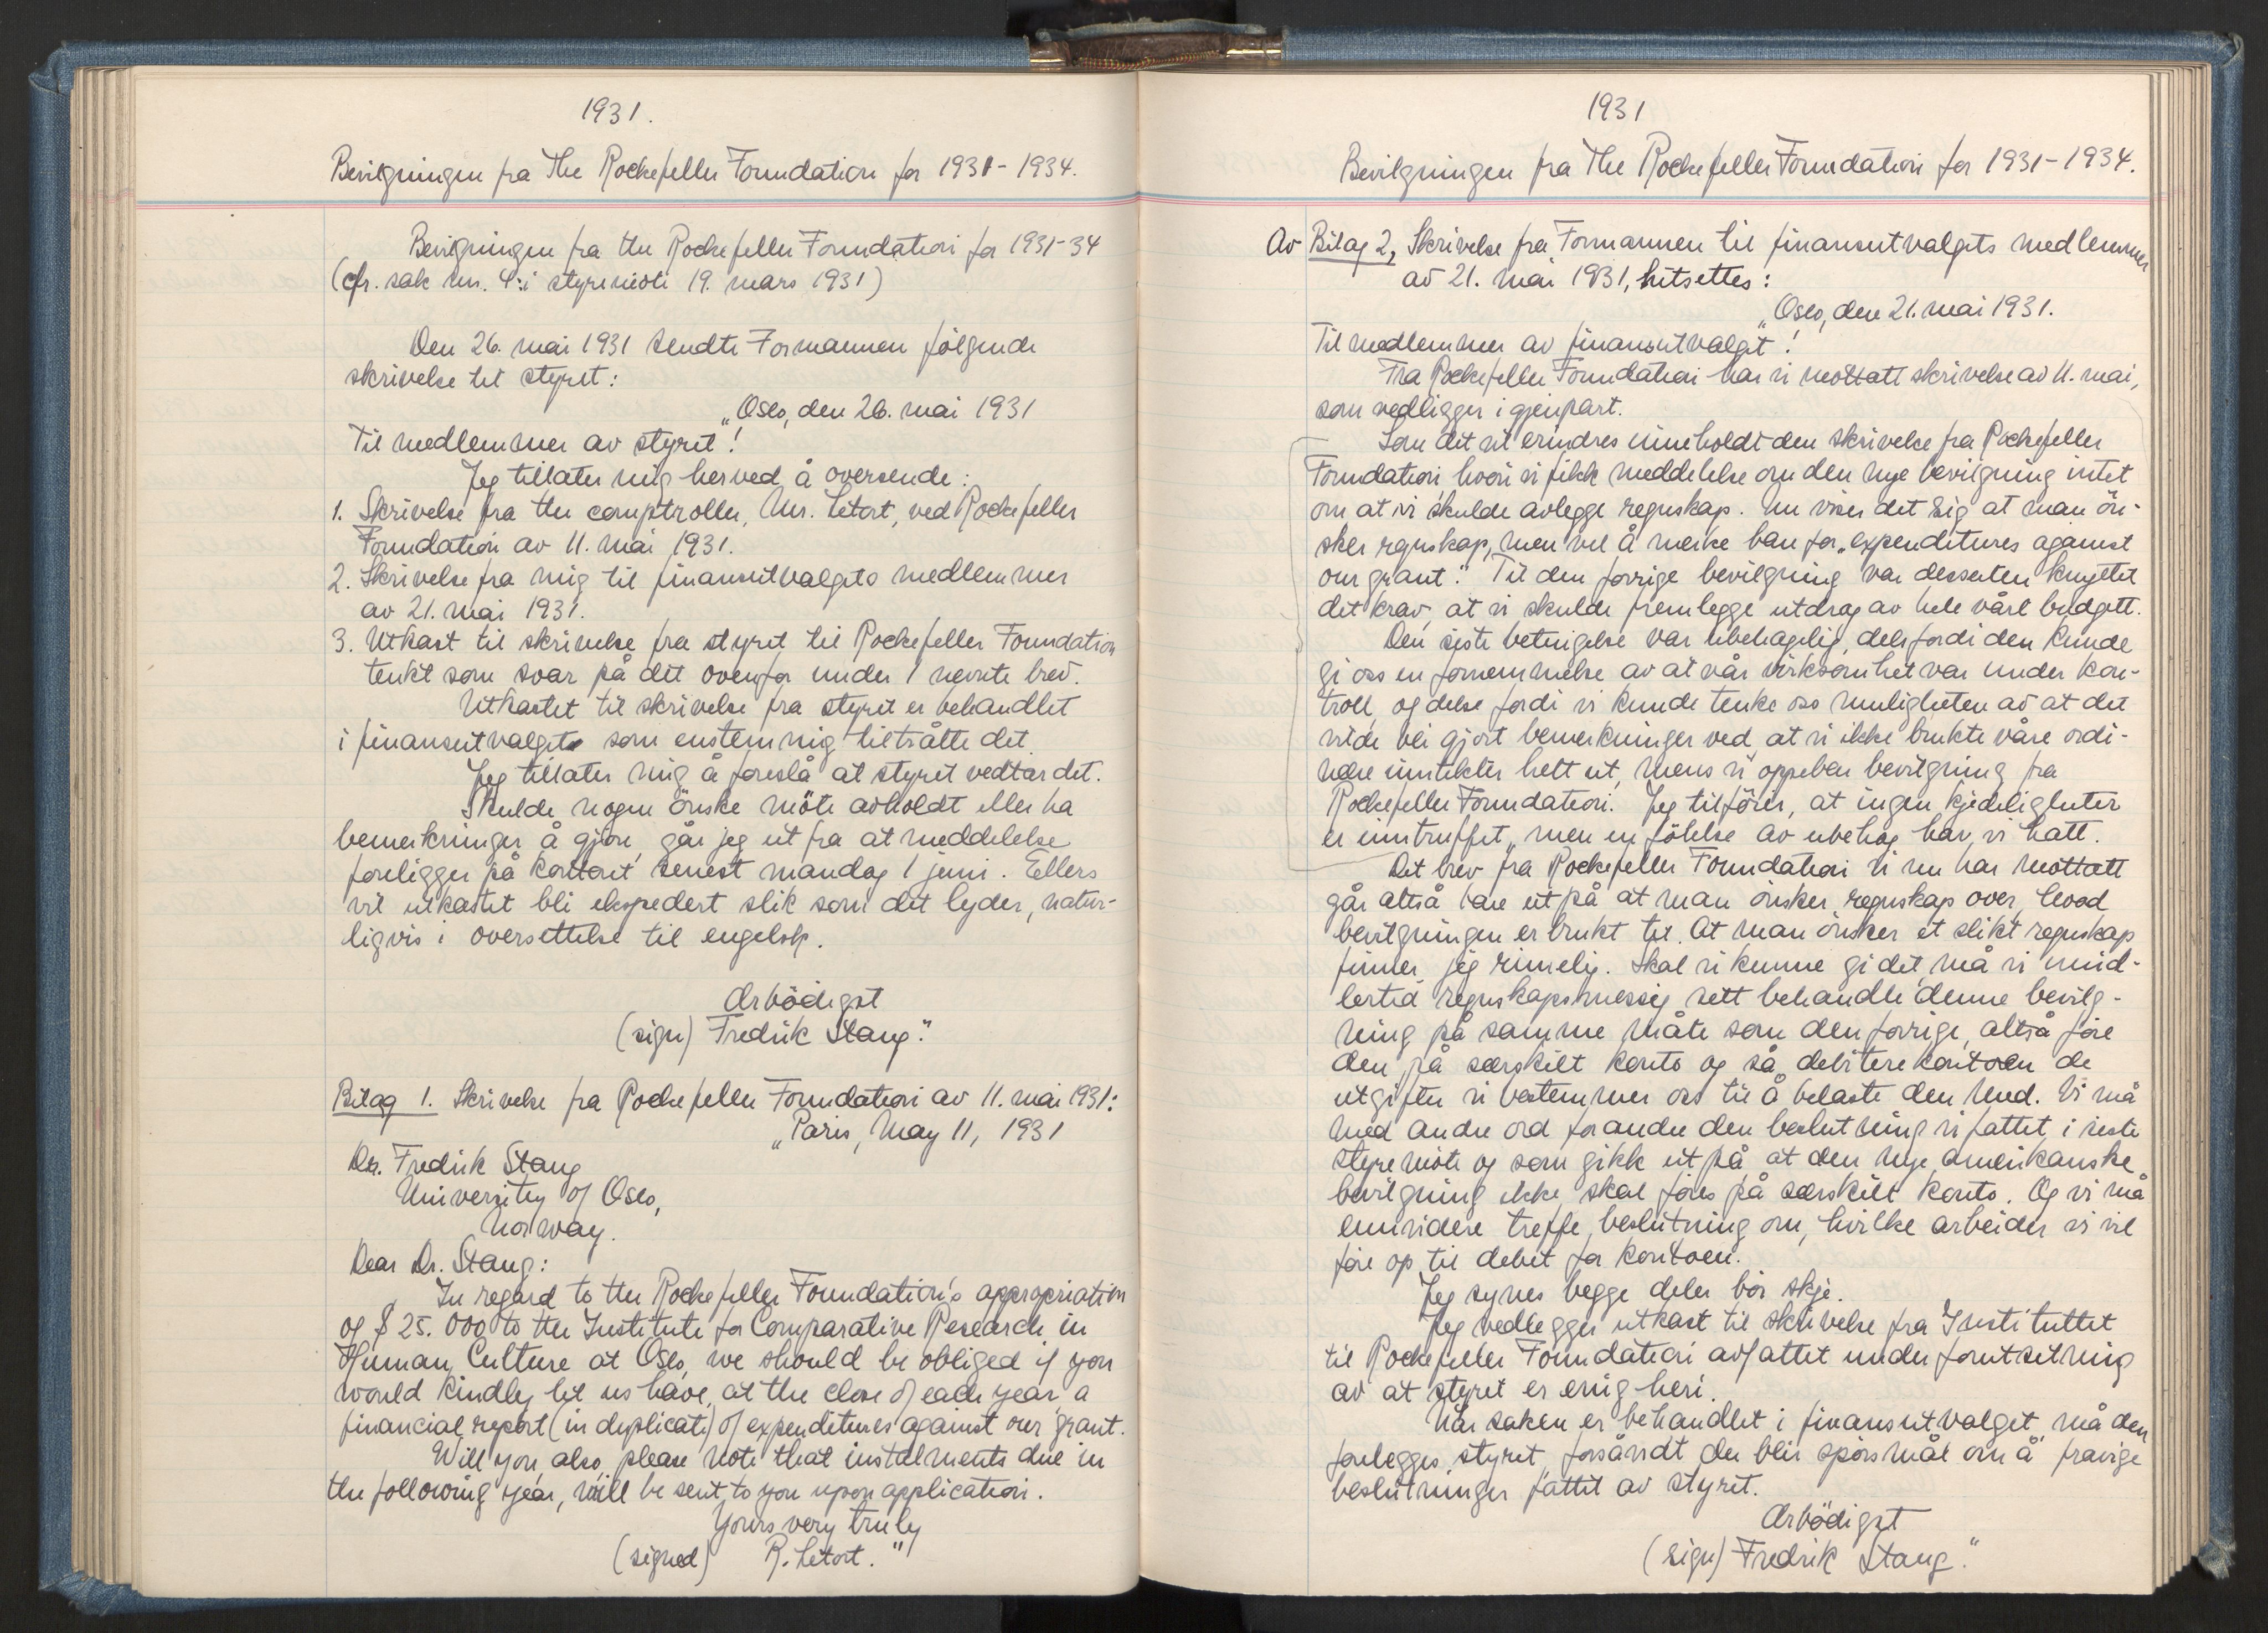 1931.
Bevilgningen fra The Rockefeller Foundation for 1931-1934.
Bevilgningen fra the Rockefeller Foundation for 1931-34
(cfr. sak nr. 4: i styremöte 19. mars 1931)
Den 26. mai 1931 sendte Formannen fölgende
skrivelse til styret:
„Oslo, den 26. mai 1931
Til medlemmer av styret!
Jeg tillater mig herved å oversende:
1. Skrivelse fra the comptroller, Mr. Letort, ved Rockefeller
Foundation av 11. mai 1931.
2. Skrivelse fra mig til finansutvalgets medlemmer
av 21. mai 1931.
3. Utkast til skrivelse fra styret til Rockefeller Foundation
tenkt som svar på det ovenfor under 1 nevnte brev.
Utkastet til skrivelse fra styret er behandlet
i finansutvalget som enstemmig tiltrådte det.
Jeg tillater mig å foreslå at styret vedtar det.
Skulde nogen önske möte avholdt eller ha
bemerkninger å gjöre, går jeg ut fra at meddelelse
foreligger på kontoret senest mandag 1 juni. Ellers
vil utkastet bli ekspedert slik som det lyder, natur-
ligvis i oversettelse til engelsk.
Ærbödigst
(sign) Fredrik Stang."
Bilag 1. Skrivelse fra Rockefeller Foundation av 11. mai 1931:
„Paris, May 11, 1931
Dr. Fredrik Stang
University of Oslo,
Norway.
Dear Dr. Stang:
In regard to the Rockefeller Foundation's appropriation
of $ 25.000 to the Institute for Comparative Research in
Human Culture at Oslo, we should be obliged if you
would kindly let us have, at the close of each year, a
financial report (in duplicate) of expenditures against our grant.
Will you also please note that instalments due in
the following year, will be sent to you upon application.
Yours very truly
(signed) R. Letort."
1931
Bevilgningen fra The Rockefeller Foundation for 1931-1934.
Av Bilag 2, Skrivelse fra Formannen til finansutvalgets medlemmer
av 21. mai 1931, hitsettes:
„Oslo, den 21. mai 1931.
Til medlemmer av finansutvalget!
Fra Rockefeller Foundation har vi mottatt skrivelse av 11. mai,
som vedligger i gjenpart.
Som det vil erindres inneholdt den skrivelse fra Rockefeller
Foundation hvori vi fikk meddelelse om den nye bevilgning intet
om at vi skulde avlegge regnskap. Nu viser det sig at man ön-
sker regnskap, men vel å merke bare for „expenditures against
our grant." Til den forrige bevilgning var dessuten knyttet
det krav, at vi skulde fremlegge utdrag av hele vårt budgett.
Den siste betingelse var ubehagelig, dels fordi den kunde
gi oss en fornemmelse av at vår virksomhet var under kon-
troll, og dels fordi vi kunde tenke oss muligheten av at det
vilde bli gjort bemerkninger ved at vi ikke brukte våre ordi-
nære inntekter helt ut, mens vi oppebar bevilgning fra
Rockefeller Foundation. Jeg tilföier, at ingen kjedeligheter
er inntruffet, men en fölelse av ubehag har vi hatt.
Det brev fra Rockefeller Foundation vi nu har mottatt
går altså bare ut på at man önsker regnskap over, hvad
bevilgningen er brukt til. At man önsker et slikt regnskap
finner jeg rimelig. Skal vi kunne gi det må vi imid-
lertid regnskapsmessig sett behandle denne bevilg-
ning på samme måte som den forrige, altså före
den på særskilt konto og så debitere kontoen de
utgifter vi bestemmer oss til å belaste den med. Vi må
med andre ord forandre den beslutning vi fattet i siste
styremöte og som gikk ut på at den nye amerikanske
bevilgning ikke skal föres på særskilt konto. Og vi må
ennvidere treffe beslutning om, hvilke arbeider vi vil
före op til debet for kontoen.
Jeg synes begge deler bör skje.
Jeg vedlegger utkast til skrivelse fra Instituttet
til Rockefeller Foundation avfattet under forutsetning
av at styret er enig heri.
Når saken er behandlet i finansutvalget, må den
forelegges styret, forsåvidt der blir spörsmål om å fravige
beslutninger fattet av styret.
Ærbödigst
(sign) Fredrik Stang."